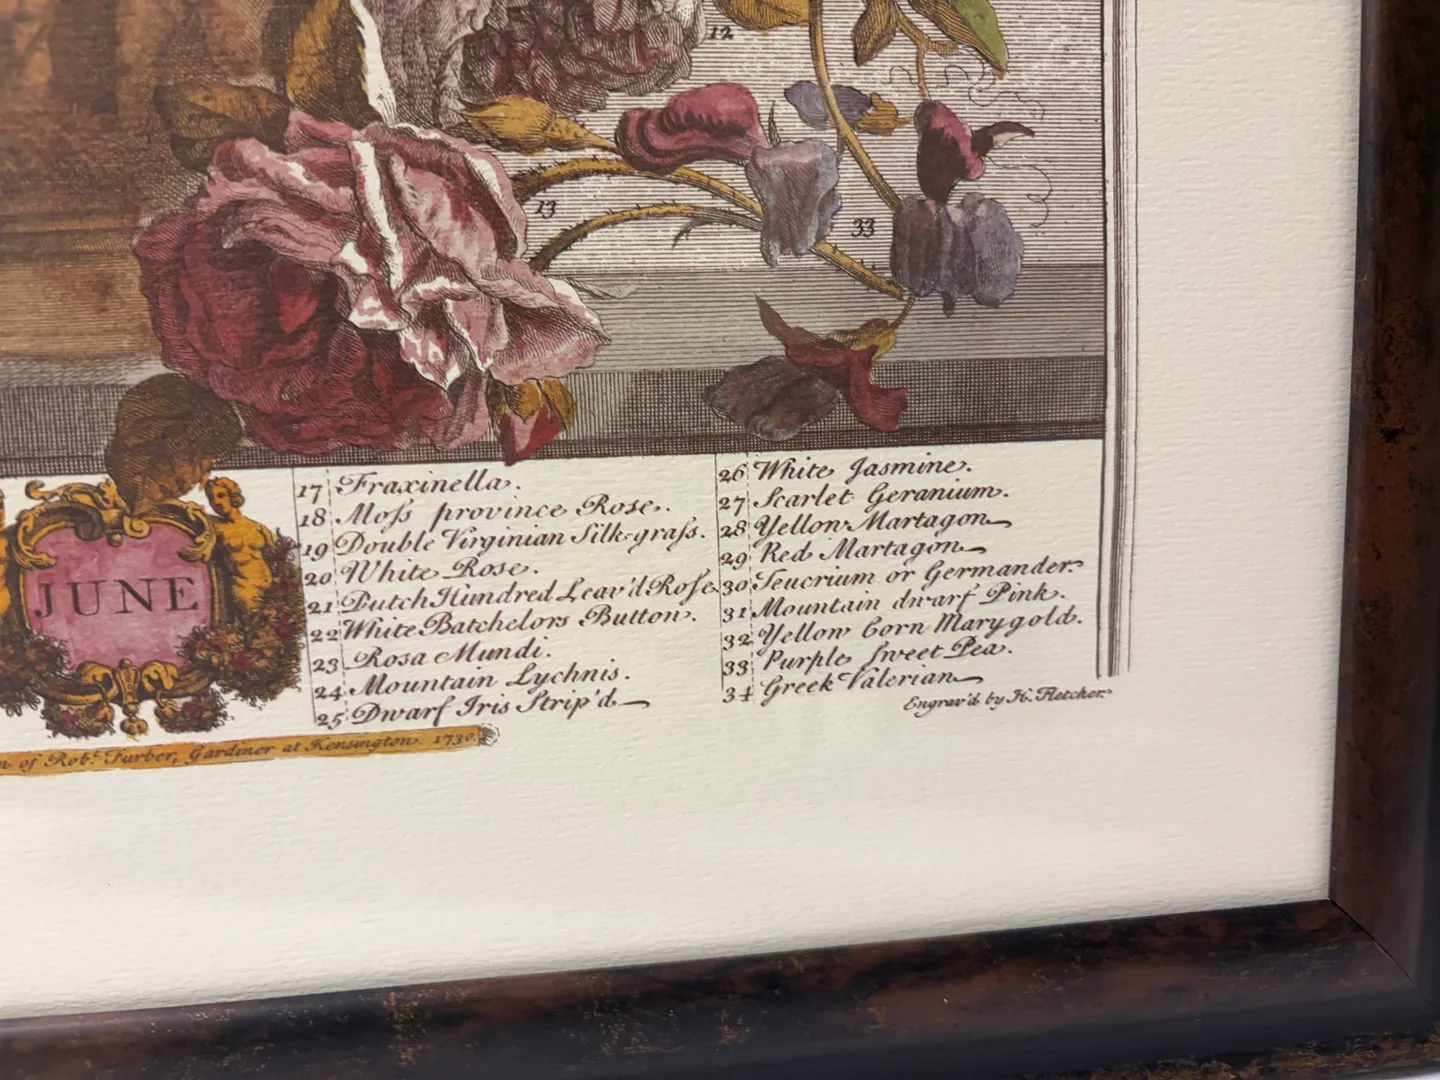 12
13
33
JUNE
17 Fraxinella.
18 Moſs province Rose.
19 Double Virginian Silk-graſs.
20 White Rose.
21 Dutch Hundred Leav'd Roſe.
22 White Batchelors Button.
23 Rosa Mundi.
24 Mountain Lychnis.
25 Dwarf Iris Strip'd
26 White Jasmine.
27 Scarlet Geranium.
28 Yellow Martagon
29 Red Martagon
30 Teucrium or Germander.
31 Mountain dwarf Pink.
32 Yellow Corn Marygold.
33 Purple ſweet Pea.
34 Greek Valerian
Engrav'd by H. Fletcher.
of Robt. Furber, Gardiner at Kensington. 1730.